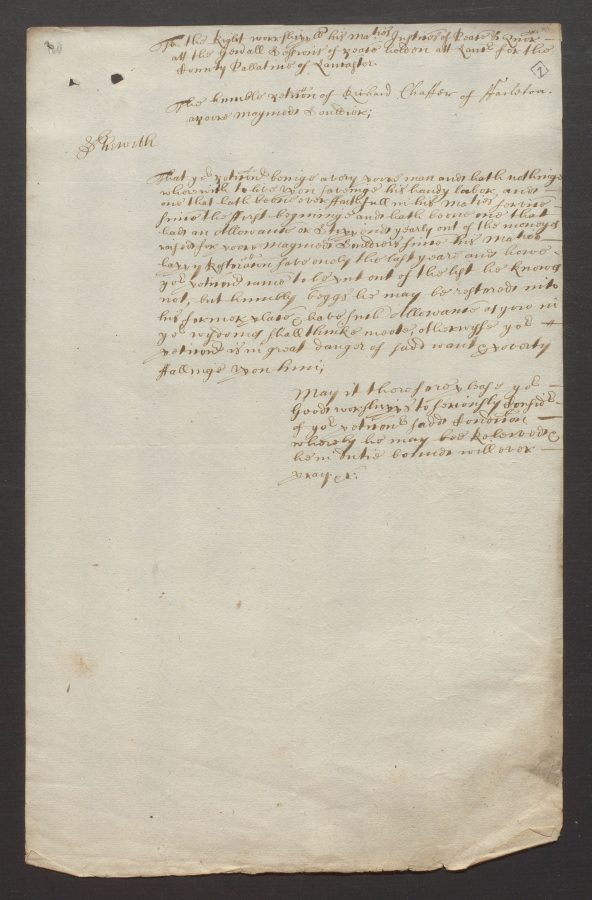 To the Right worshipfull his Maties Justices of Peace &
att the Gen'all Sessions of peace holden att Lanc' for the
County Pallatine of Lancaster.
2
The humble peticon of Richard Chaffer of Tarleton.
a poore Maymed Souldier;
Sheweth
That yor peticonr beinge a very poore man and hath nothinge
wherewith to live upon saveinge his handy labor, and
one that hath beene ever faithfull in his Maties service
since the first beginninge and hath beene one that
had an Allowance or yearly out of the moneys
raised for poore Maymed Souldiers since his Maties
happy Restoration save onely the last yeare and howe
yor peticonr came to be put out of the list he knows
not, but humbly beggs he may be restored into
his former place & have such Allowance as you in
yor shall thinke meete, otherwyse yor
peticonr is in great danger of sadd want & poverty
fallinge upon him;
May it therefore please yor
Good worshipps to seriously consider
of yor peticonrs sadd Condicon
whereby he may bee Releeved &
he in dutie bounde will ever
pray &c.